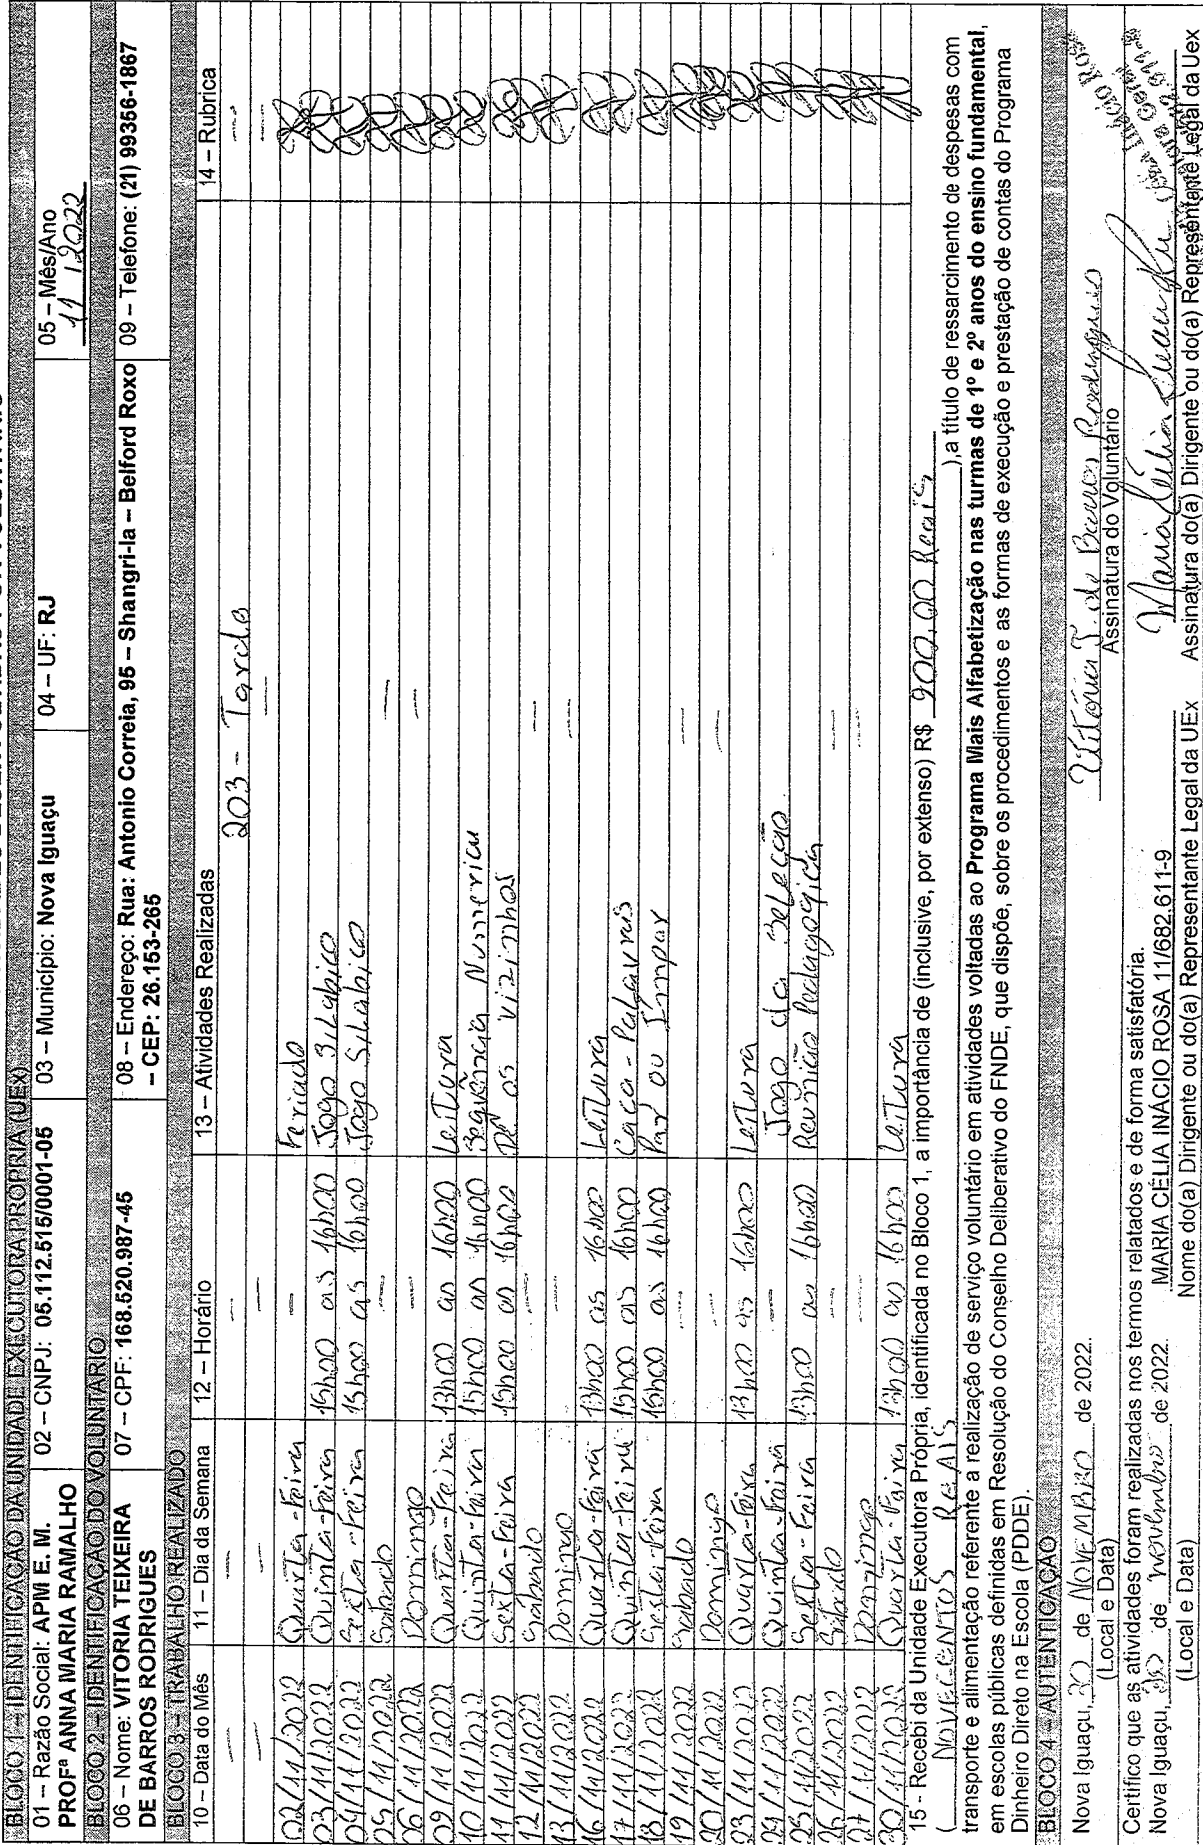 BLOCO 1 – IDENTIFICAÇÃO DA UNIDADE EXECUTORA PRÓPRIA (UEX)
01 – Razão Social: APM E. M. PROFª ANNA MARIA RAMALHO
02 – CNPJ: 05.112.515/0001-05
03 – Município: Nova Iguaçu
04 – UF: RJ
05 – Mês/Ano
11 / 2022
BLOCO 2 – IDENTIFICAÇÃO DO VOLUNTÁRIO
06 – Nome: VITORIA TEIXEIRA DE BARROS RODRIGUES
07 – CPF: 168.520.987-45
08 – Endereço: Rua: Antonio Correia, 95 – Shangri-la – Belford Roxo – CEP: 26.153-265
09 – Telefone: (21) 99356-1867
BLOCO 3 – TRABALHO REALIZADO
10 – Data do Mês 11 – Dia da Semana 12 – Horário 13 – Atividades Realizadas 14 – Rubrica
203 – Tarde
02/11/2022 Quarta-Feira — Feriado
03/11/2022 Quinta-Feira 15h00 as 16h00 Jogo Silabico
04/11/2022 Sexta-Feira 15h00 as 16h00 Jogo Silabico
05/11/2022 Sabado
06/11/2022 Domingo
09/11/2022 Quarta-Feira 13h00 as 16h00 Leitura
10/11/2022 Quinta-Feira 15h00 as 16h00 Sequência Numerica
11/11/2022 Sexta-Feira 15h00 as 16h00 Dê os vizinhos
12/11/2022 Sabado
13/11/2022 Domingo
16/11/2022 Quarta-Feira 13h00 as 16h00 Leitura
17/11/2022 Quinta-Feira 15h00 as 16h00 Caça-Palavras
18/11/2022 Sexta-Feira 15h00 as 16h00 Par ou Ímpar
19/11/2022 Sabado
20/11/2022 Domingo
23/11/2022 Quarta-Feira 13h00 as 16h00 Leitura
24/11/2022 Quinta-Feira — Jogo da Seleção
25/11/2022 Sexta-Feira 13h00 as 16h00 Reunião Pedagógica
26/11/2022 Sabado
27/11/2022 Domingo
30/11/2022 Quarta-Feira 13h00 as 16h00 Leitura
15 - Recebi da Unidade Executora Própria, identificada no Bloco 1, a importância de (inclusive, por extenso) R$ 900,00 Reais
( NOVECENTOS REAIS ),a título de ressarcimento de despesas com
transporte e alimentação referente a realização de serviço voluntário em atividades voltadas ao Programa Mais Alfabetização nas turmas de 1º e 2º anos do ensino fundamental,
em escolas públicas definidas em Resolução do Conselho Deliberativo do FNDE, que dispõe, sobre os procedimentos e as formas de execução e prestação de contas do Programa
Dinheiro Direto na Escola (PDDE).
BLOCO 4 – AUTENTICAÇÃO
Nova Iguaçu, 30 de NOVEMBRO de 2022.
(Local e Data)
Vitória T. de Barros Rodrigues
Assinatura do Voluntário
Certifico que as atividades foram realizadas nos termos relatados e de forma satisfatória.
Nova Iguaçu, 30 de novembro de 2022.
(Local e Data)
MARIA CÉLIA INÁCIO ROSA 11/682.611-9
Nome do(a) Dirigente ou do(a) Representante Legal da UEx
Assinatura do(a) Dirigente ou do(a) Representante Legal da Uex